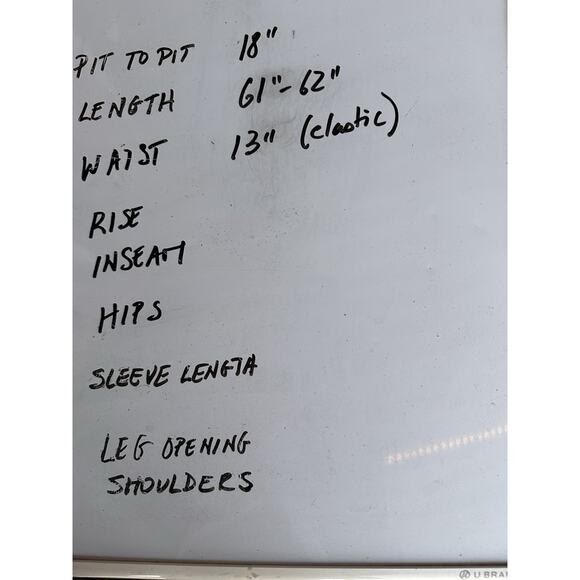 PIT TO PIT 18"
LENGTH 61"-62"
WAIST 13" (elastic)
RISE
INSEAM
HIPS
SLEEVE LENGTH
LEG OPENING
SHOULDERS
U BRA